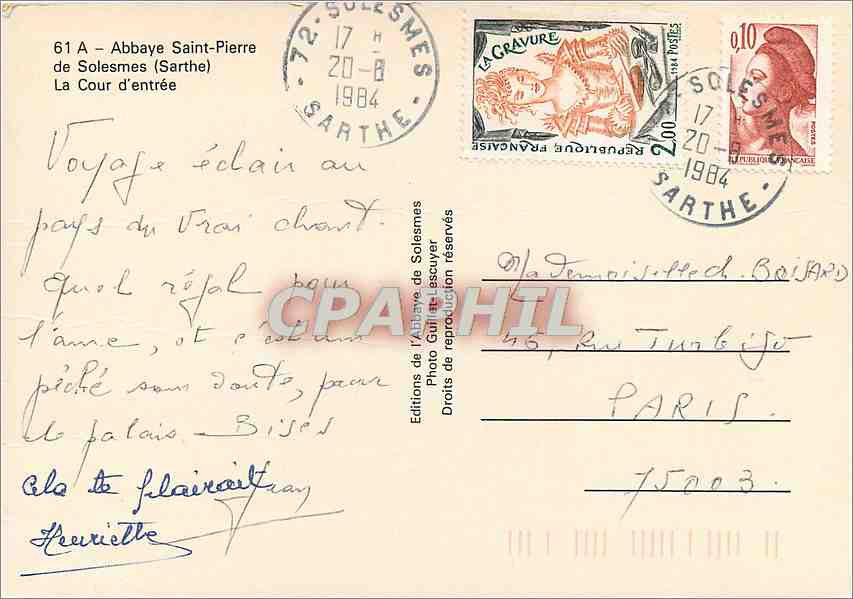 61 A – Abbaye Saint-Pierre
de Solesmes (Sarthe)
La Cour d'entrée
72 - SOLESMES
17 H
20-8
1984
SARTHE
LA GRAVURE
1984 POSTES
2,00
RÉPUBLIQUE FRANÇAISE
0,10
POSTES
RÉPUBLIQUE FRANÇAISE
72 - SOLESMES
17 H
20-8
1984
SARTHE
Voyage éclair au
pays du vrai chant.
Quel régal pour
l'âme, et c'est un
péché sans doute, pour
le palais - Bises
cela te plairait
Henriette
Editions de l'Abbaye de Solesmes
Photo Guillet-Lescuyer
Droits de reproduction réservés
Mademoiselle Ch. BOISARD
46, Rue Turbigo
PARIS.
75003.
CPAPHIL